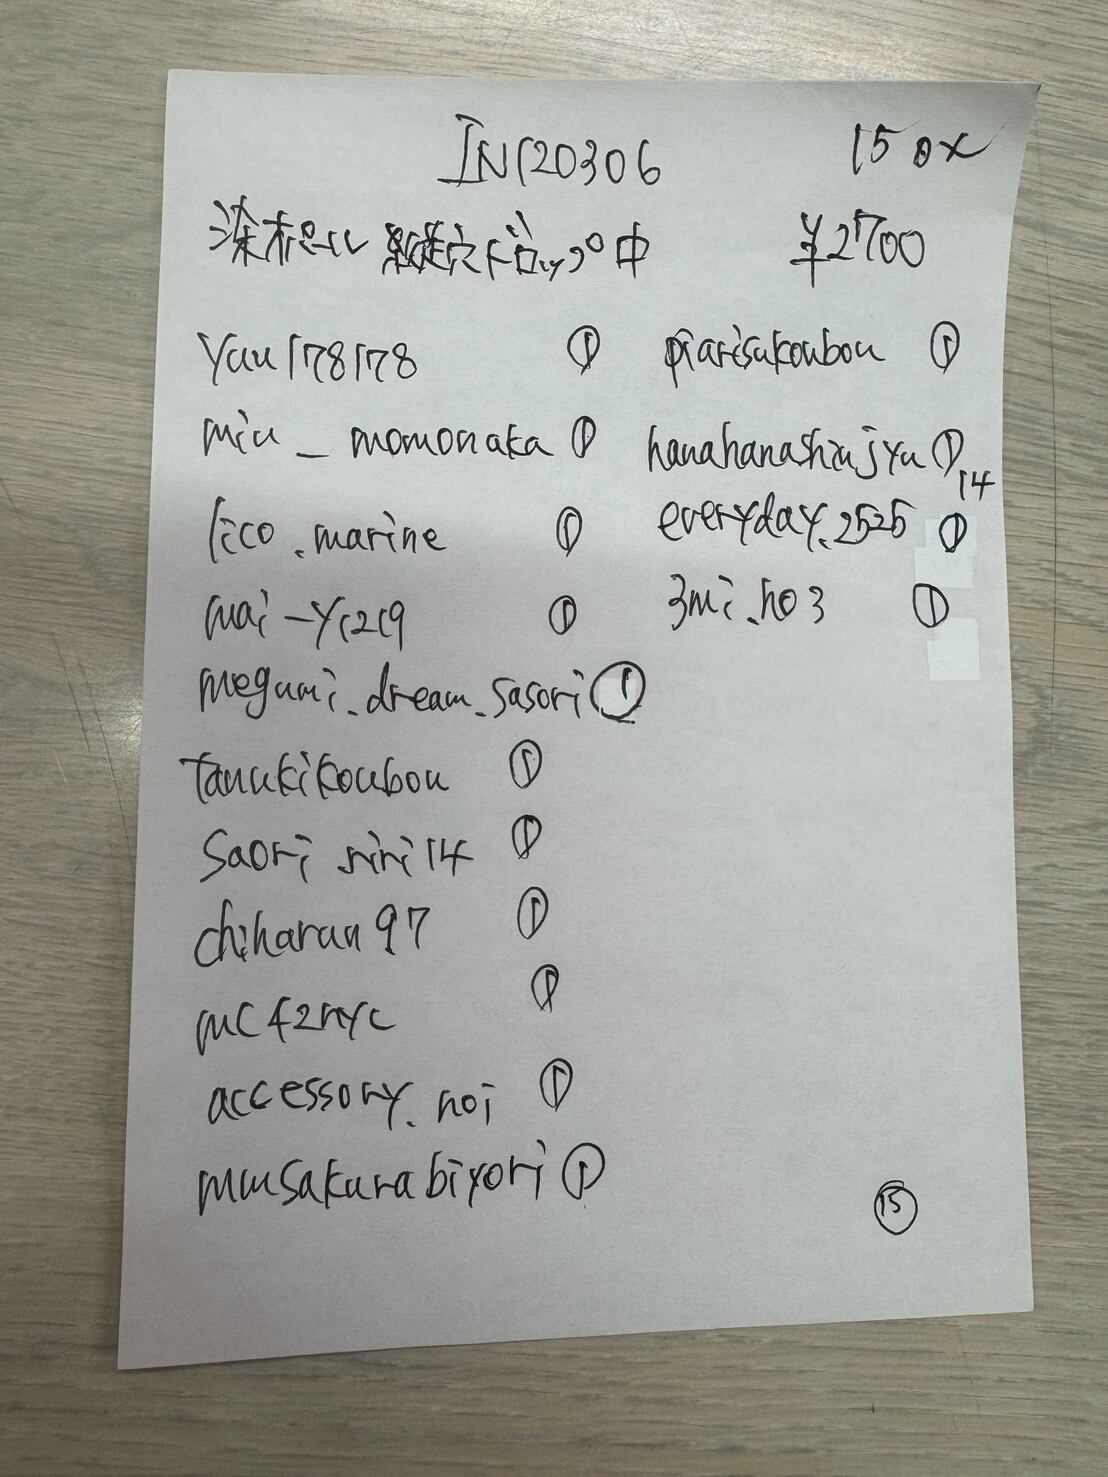 IN120306
150x
塗パール 縦穴ドロップ中
¥2700
yuu178178 ①
miu_momonaka ①
lico.marine ①
mai-y1219 ①
megumi_dream_sasori ①
tanukikoubou ①
saori riri14 ①
chiharun97 ①
mc42nyc ①
accessory.noi ①
musakurabiyori ①
piarisukoubou ①
hanahanashinjyu ①
14
everyday.2525 ①
3mi.ho3 ①
⑮